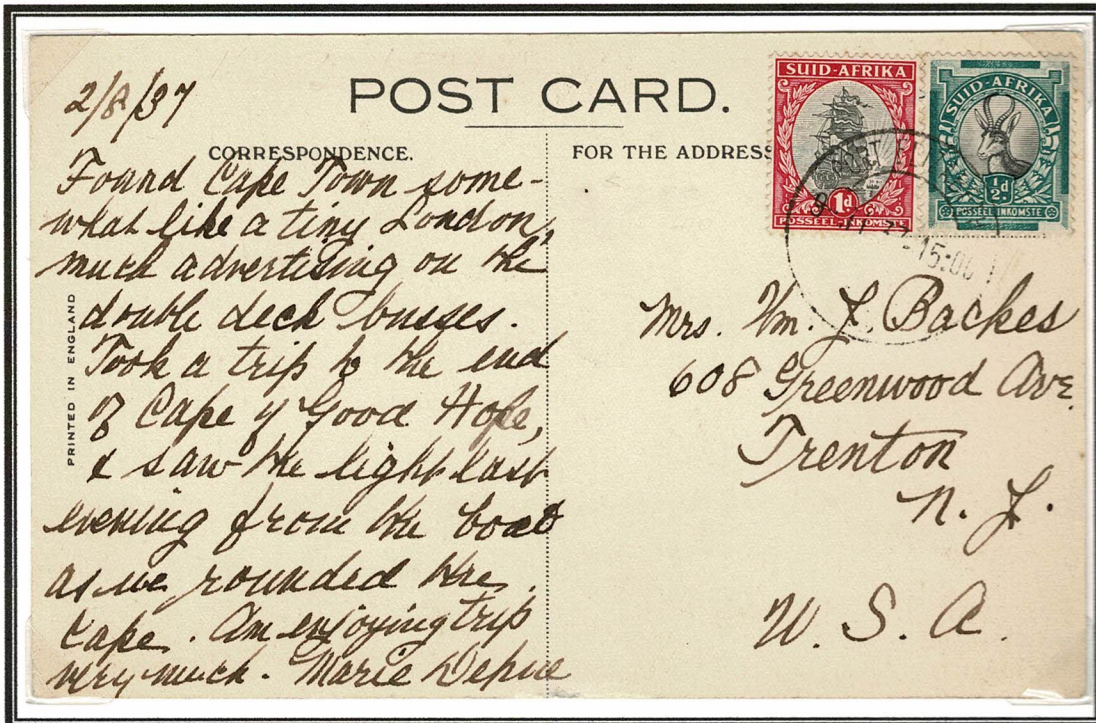 2/8/37
POST CARD.
CORRESPONDENCE.
FOR THE ADDRESS
Found Cape Town some-
what like a tiny London,
much advertising on the
double deck busses.
Took a trip to the end
of Cape of Good Hope,
& saw the light last
evening from the boat
as we rounded the
Cape. Am enjoying trip
very much. Marie Depue
PRINTED IN ENGLAND
SUID-AFRIKA
1d
POSSEEL-INKOMSTE
SUID-AFRIKA
½d
POSSEEL-INKOMSTE
15:00
Mrs. Wm. L. Backes
608 Greenwood Ave.
Trenton
N. J.
U. S. A.